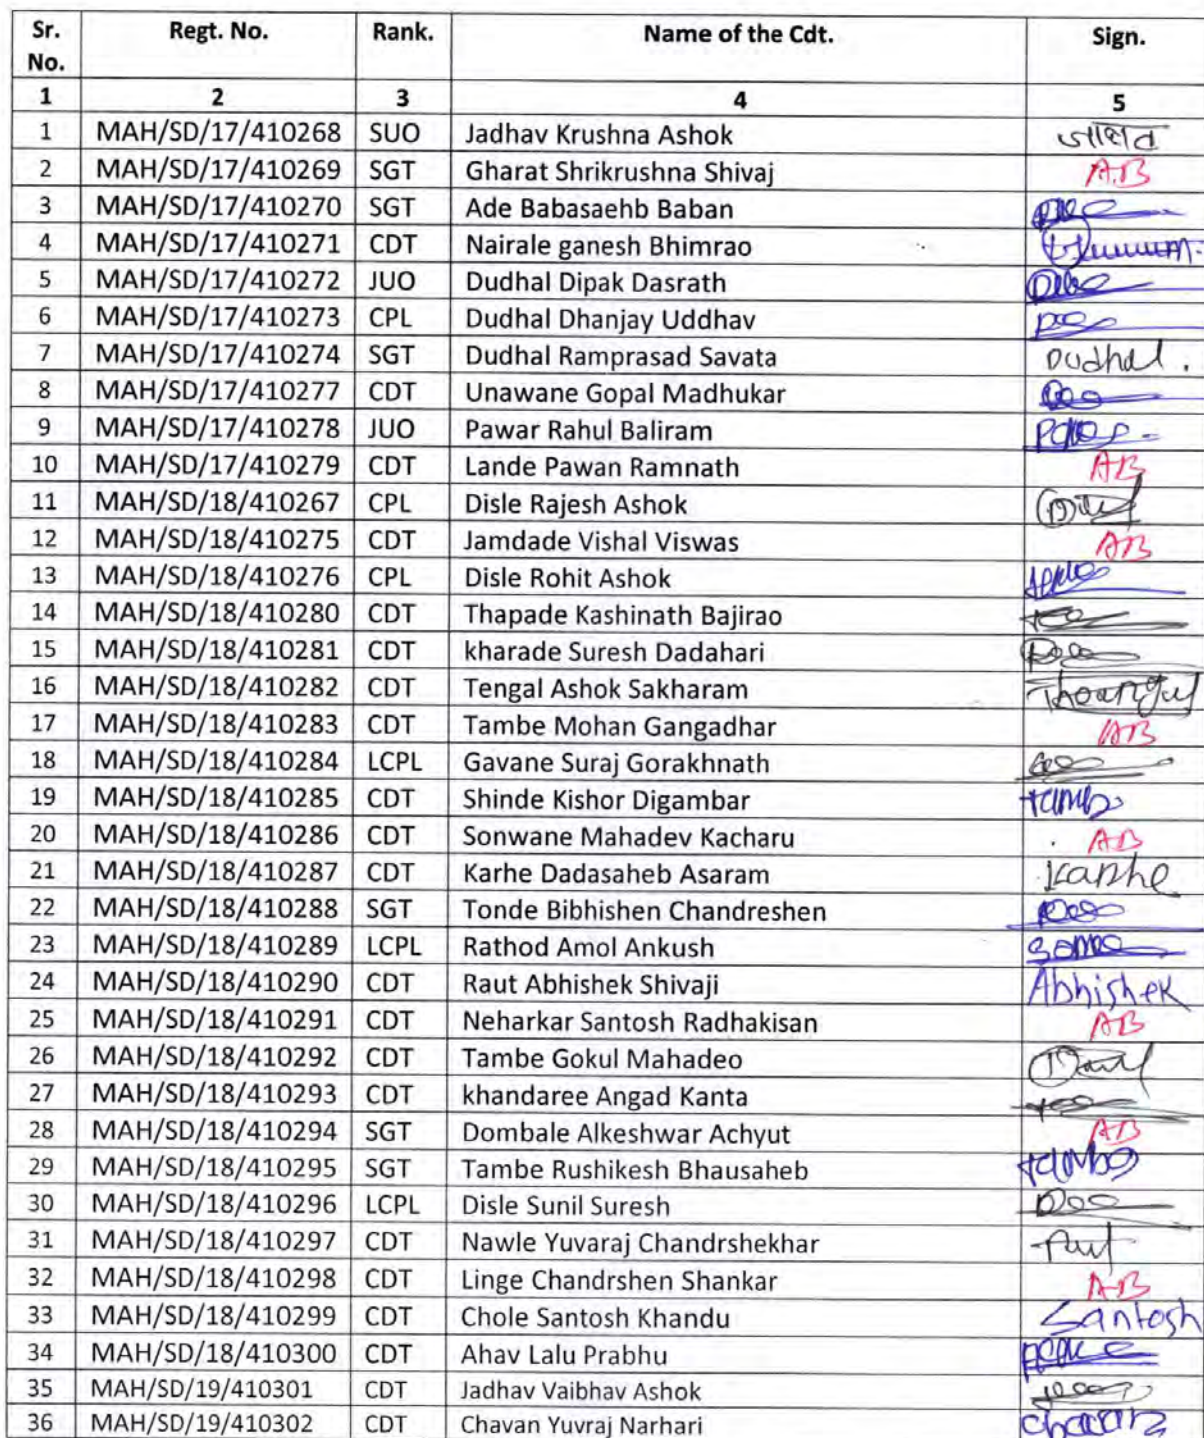 Sr. No. Regt. No. Rank. Name of the Cdt. Sign.
1 2 3 4 5
1 MAH/SD/17/410268 SUO Jadhav Krushna Ashok जाधव
2 MAH/SD/17/410269 SGT Gharat Shrikrushna Shivaj A.B
3 MAH/SD/17/410270 SGT Ade Babasaehb Baban
4 MAH/SD/17/410271 CDT Nairale ganesh Bhimrao
5 MAH/SD/17/410272 JUO Dudhal Dipak Dasrath
6 MAH/SD/17/410273 CPL Dudhal Dhanjay Uddhav
7 MAH/SD/17/410274 SGT Dudhal Ramprasad Savata Dudhal .
8 MAH/SD/17/410277 CDT Unawane Gopal Madhukar
9 MAH/SD/17/410278 JUO Pawar Rahul Baliram
10 MAH/SD/17/410279 CDT Lande Pawan Ramnath AB
11 MAH/SD/18/410267 CPL Disle Rajesh Ashok
12 MAH/SD/18/410275 CDT Jamdade Vishal Viswas AB
13 MAH/SD/18/410276 CPL Disle Rohit Ashok
14 MAH/SD/18/410280 CDT Thapade Kashinath Bajirao
15 MAH/SD/18/410281 CDT kharade Suresh Dadahari
16 MAH/SD/18/410282 CDT Tengal Ashok Sakharam
17 MAH/SD/18/410283 CDT Tambe Mohan Gangadhar AB
18 MAH/SD/18/410284 LCPL Gavane Suraj Gorakhnath
19 MAH/SD/18/410285 CDT Shinde Kishor Digambar
20 MAH/SD/18/410286 CDT Sonwane Mahadev Kacharu AB
21 MAH/SD/18/410287 CDT Karhe Dadasaheb Asaram Karhe
22 MAH/SD/18/410288 SGT Tonde Bibhishen Chandreshen
23 MAH/SD/18/410289 LCPL Rathod Amol Ankush
24 MAH/SD/18/410290 CDT Raut Abhishek Shivaji Abhishek
25 MAH/SD/18/410291 CDT Neharkar Santosh Radhakisan AB
26 MAH/SD/18/410292 CDT Tambe Gokul Mahadeo
27 MAH/SD/18/410293 CDT khandaree Angad Kanta
28 MAH/SD/18/410294 SGT Dombale Alkeshwar Achyut AB
29 MAH/SD/18/410295 SGT Tambe Rushikesh Bhausaheb tambe
30 MAH/SD/18/410296 LCPL Disle Sunil Suresh
31 MAH/SD/18/410297 CDT Nawle Yuvaraj Chandrshekhar
32 MAH/SD/18/410298 CDT Linge Chandrshen Shankar AB
33 MAH/SD/18/410299 CDT Chole Santosh Khandu Santosh
34 MAH/SD/18/410300 CDT Ahav Lalu Prabhu
35 MAH/SD/19/410301 CDT Jadhav Vaibhav Ashok
36 MAH/SD/19/410302 CDT Chavan Yuvraj Narhari